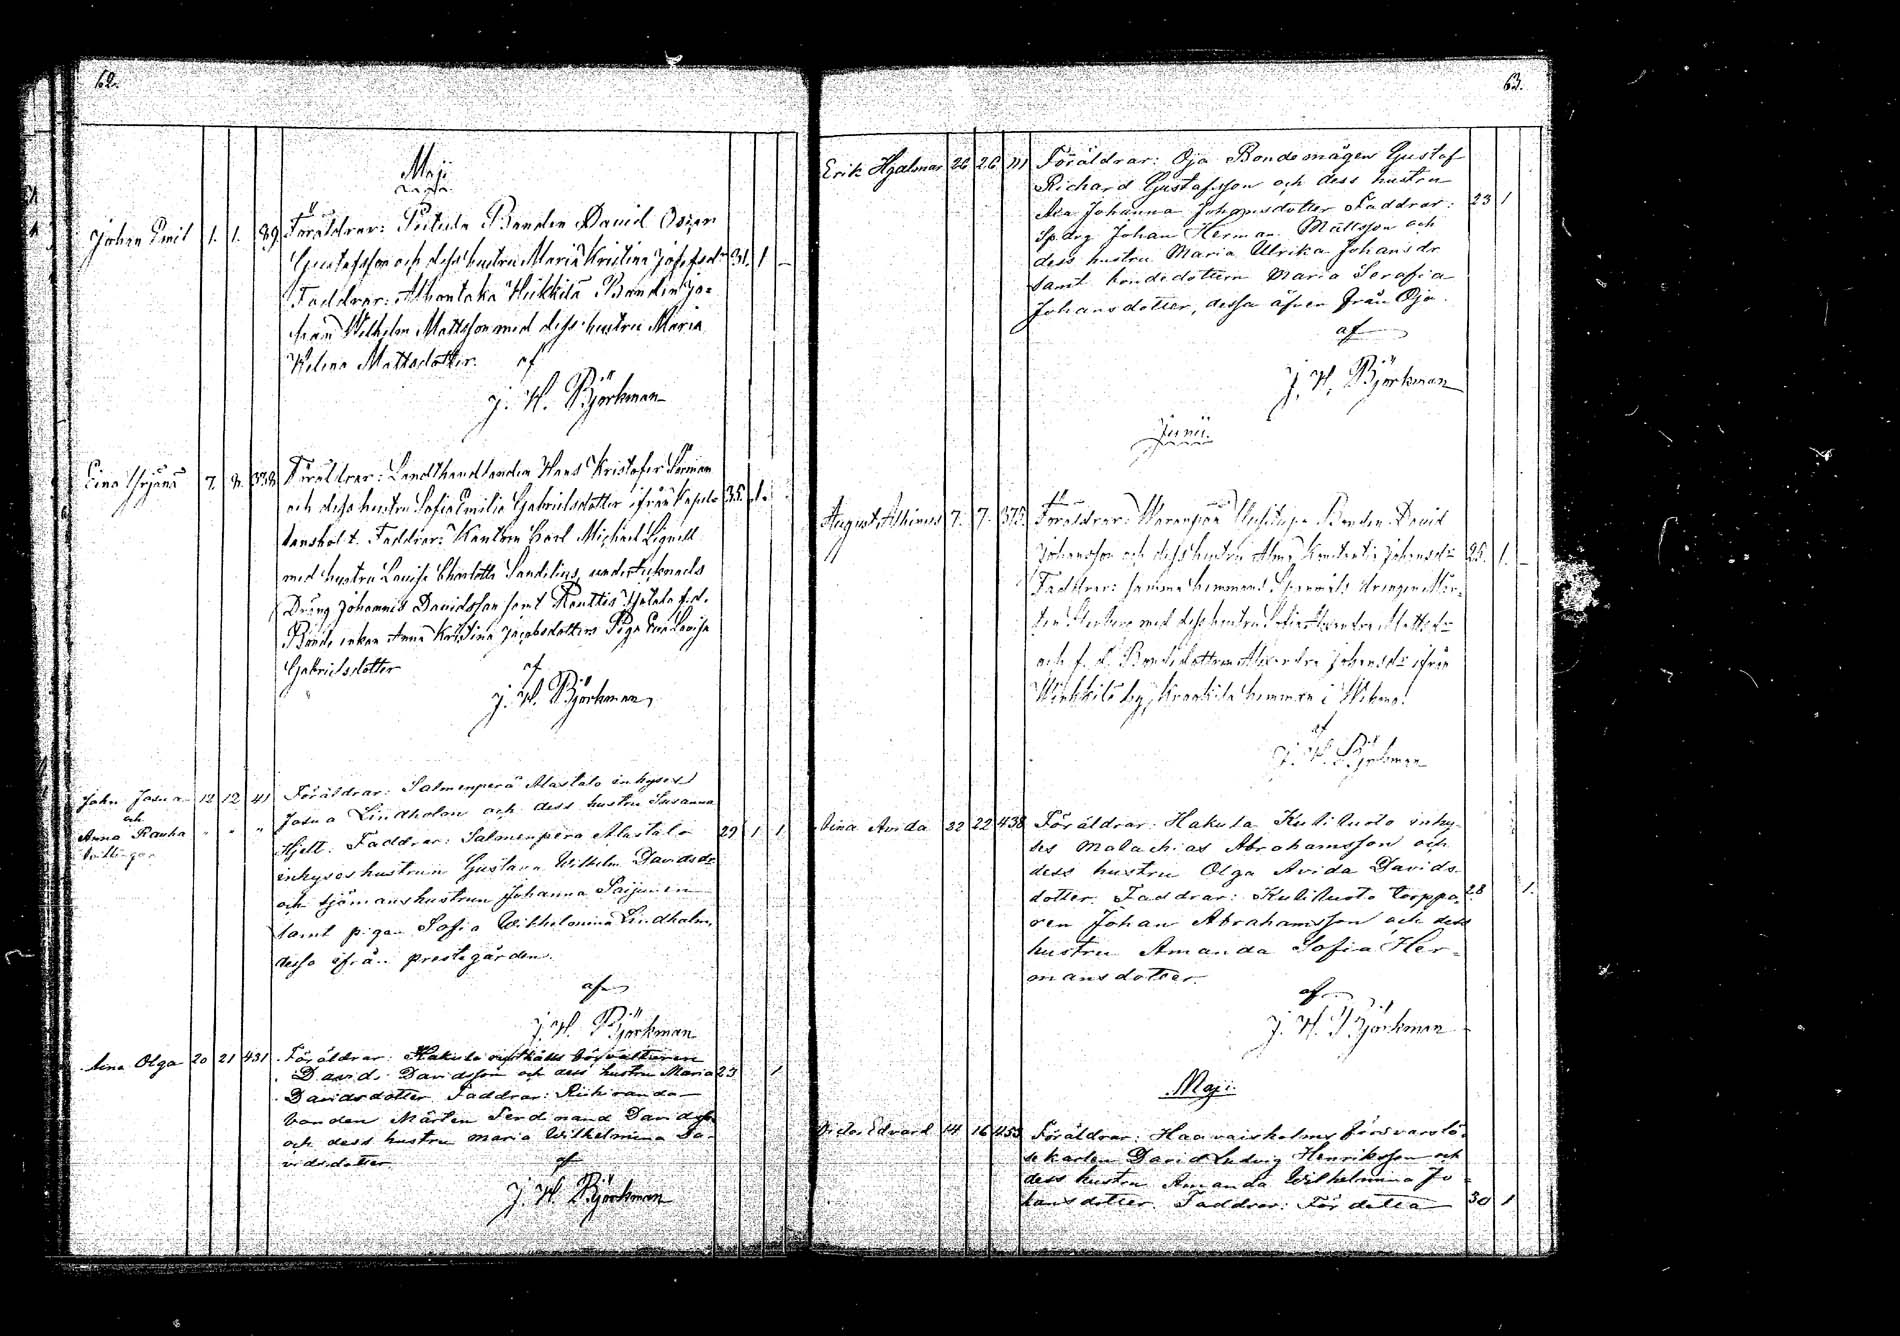 62.
Maji
Johan Emil 1. 1. 89. Föräldrar: Bonden David Oskar
Gustafsson och dess hustru Maria Kristina Josefsdr 31. 1
Faddrar: Heikkilä Bonden Jo=
han Wilhelm Mattsson med dess hustru Maria
Helena Mattsdotter. af
J. H. Björkman
Eina Yrjänä 7. 8. 338. Föräldrar: Landthandlanden Hans Kristofer Törman
och dess hustru Sofia Emilia Gabrielsdotter ifrån Kapels 35. 1.
Faddrar: Kantorn Carl Michael Lignell
med hustru Lovisa Charlotta Sandelius, undertecknads
Dräng Johannes Davidsson samt
Bonde enkan Anna Kristina Jacobsdotters Piga Eva Lovisa
Gabrielsdotter
af
J. H. Björkman
John Josua 12 12 41 Föräldrar: Salmenperä Alastalo inhyses
och
Josua Lindholm och dess hustru Susanna
Anna Rauha " " " Hjelt. Faddrar: Salmenperä Alastalo 29 1 1
tvillingar
inhyses hustrun Gustava Wilhelm Davidsdr
och sjömanshustrun Johanna Saijonen
samt pigan Sofia Wilhelmina Lindholm,
dessa ifrån prestegården.
af
J. H. Björkman
Aina Olga 20 21 431 Föräldrar: Hakula
David Davidsson och dess hustru Maria 23 1
Davidsdotter Faddrar: Riihiranda
bonden Mårten Ferdinand Davidsson
och dess hustru Maria Wilhelmina Da-
vidsdotter
af
J. H. Björkman
63.
Erik Hjalmar 26 26 111 Föräldrar: Oja Bondemågen Gustaf
Richard Gustafsson och dess hustru
Johanna Johansdotter Faddrar: 23 1
Johan Herman Mattsson och
dess hustru Maria Ulrika Johansdr
samt bondedottern Maria Serafia
Johansdotter, dessa äfven från Oja.
af
J. H. Björkman
Junii.
August Alhinus 7. 7. 375. Föräldrar: Waranpää Bonden David
Johansson och dess hustru Alma Johansdr 25. 1.
Faddrar: samma hemmans drengen Mår-
ten med dess hustru Sofia Mattsdr
och f. d. Bondedottren Alexandra Johansdr ifrån
by, hemman i
af
J. H. Björkman
Aina Avida 22 22 438 Föräldrar: Hakula inhy-
ses Malachias Abrahamsson och
dess hustru Olga Avida Davids-
dotter. Faddrar: torppa- 28 1.
ren Johan Abrahamsson och dess
hustru Amanda Sofia Her=
mansdotter.
af
J. H. Björkman
Maji.
Victor Edvard 14 16 455 Föräldrar: Haarvaisholms försvarslö-
se karlen David Ludvig Henriksson och
dess hustru Amanda Wilhelmina Jo-
hansdotter. Faddrar: För detta 30 1